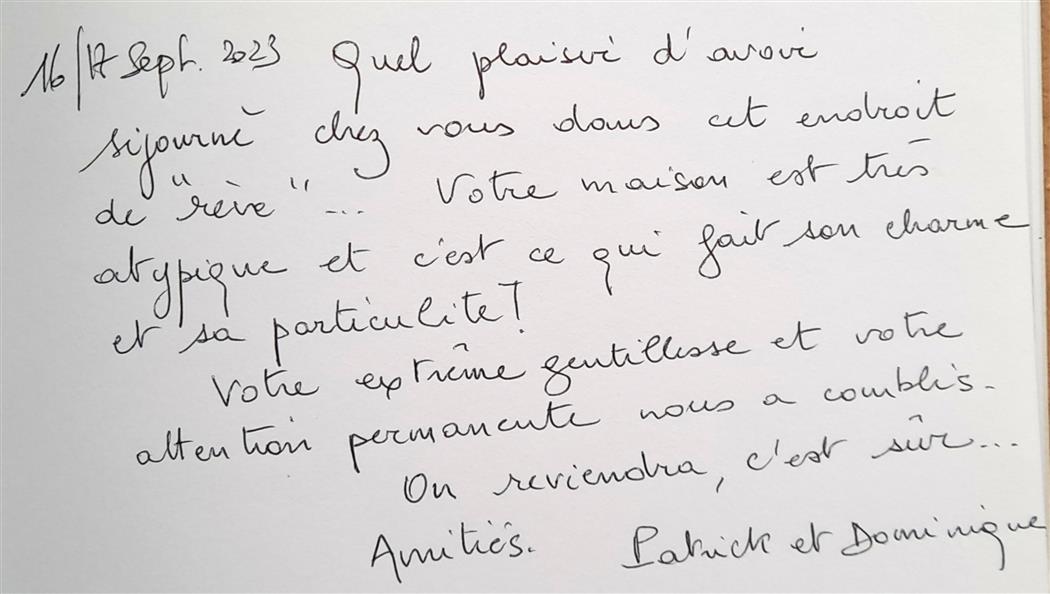 16/17 Sept. 2023 Quel plaisir d'avoir
séjourné chez vous dans cet endroit
de "rêve"... Votre maison est très
atypique et c'est ce qui fait son charme
et sa particulité !
Votre extrême gentillesse et votre
attention permanente nous a comblés.
On reviendra, c'est sûr...
Amitiés. Patrick et Dominique